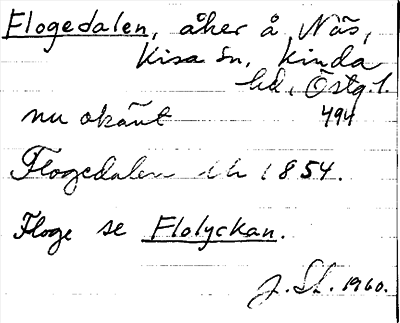 Flogedalen, åker å Näs,
Kisa sn, Kinda
hd, Östg. l.
nu okänt 494
Flogedalen 1854.
Floge se Flolyckan.
J. St. 1960.